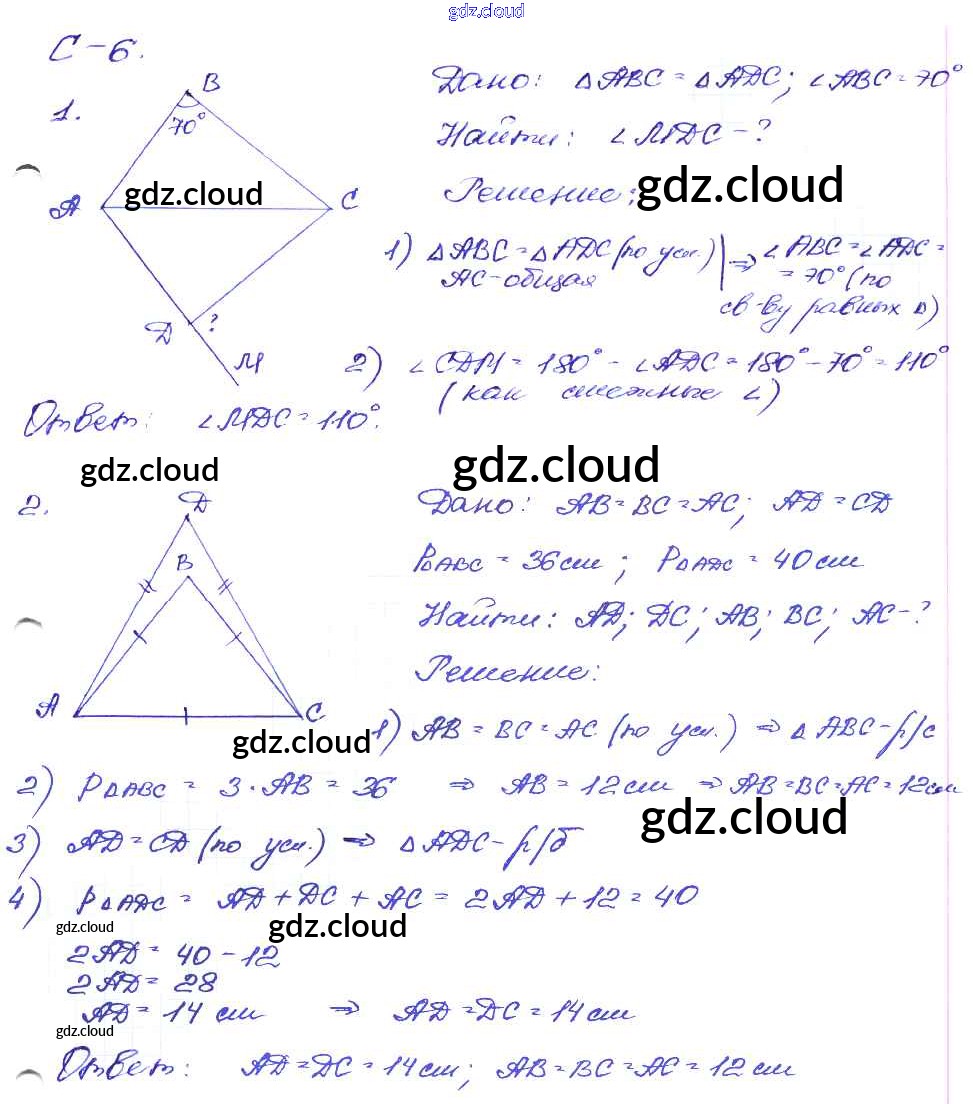 gdz.cloud
С-6.
1.
B
70°
A
C
D
?
M
gdz.cloud
Дано: △ABC = △ADC; ∠ABC = 70°
Найти: ∠MDC - ?
Решение:
gdz.cloud
1) △ABC = △ADC (по усл.) | ⇒ ∠ABC = ∠ADC =
AC - общая = 70° (по
св-ву равных △)
2) ∠CDM = 180° - ∠ADC = 180° - 70° = 110°
(как смежные ∠)
Ответ: ∠MDC = 110°.
gdz.cloud
gdz.cloud
2.
D
B
A
C
gdz.cloud
Дано: AB = BC = AC; AD = CD
P△ABC = 36 см; P△ADC = 40 см
Найти: AD; DC; AB; BC; AC - ?
Решение:
1) AB = BC = AC (по усл.) ⇒ △ABC - р/с
2) P△ABC = 3 · AB = 36 ⇒ AB = 12 см ⇒ AB = BC = AC = 12 см
gdz.cloud
3) AD = CD (по усл.) ⇒ △ADC - р/б
4) P△ADC = AD + DC + AC = 2AD + 12 = 40
gdz.cloud
gdz.cloud
2AD = 40 - 12
2AD = 28
AD = 14 см ⇒ AD = DC = 14 см
gdz.cloud
Ответ: AD = DC = 14 см; AB = BC = AC = 12 см